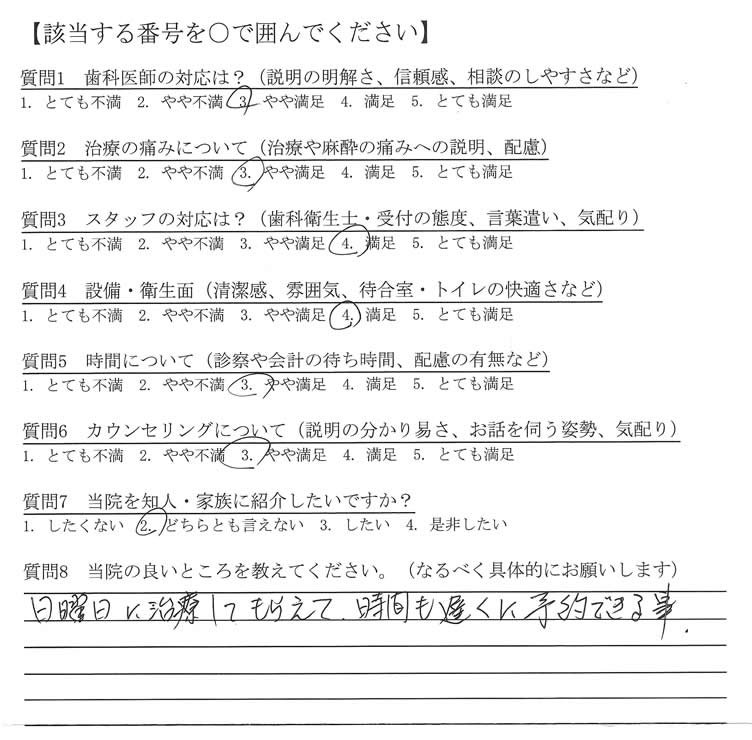 【該当する番号を○で囲んでください】
質問1 歯科医師の対応は？（説明の明解さ、信頼感、相談のしやすさなど）
1. とても不満 2. やや不満 3. やや満足 4. 満足 5. とても満足
質問2 治療の痛みについて（治療や麻酔の痛みへの説明、配慮）
1. とても不満 2. やや不満 3. やや満足 4. 満足 5. とても満足
質問3 スタッフの対応は？（歯科衛生士・受付の態度、言葉遣い、気配り）
1. とても不満 2. やや不満 3. やや満足 4. 満足 5. とても満足
質問4 設備・衛生面（清潔感、雰囲気、待合室・トイレの快適さなど）
1. とても不満 2. やや不満 3. やや満足 4. 満足 5. とても満足
質問5 時間について（診察や会計の待ち時間、配慮の有無など）
1. とても不満 2. やや不満 3. やや満足 4. 満足 5. とても満足
質問6 カウンセリングについて（説明の分かり易さ、お話を伺う姿勢、気配り）
1. とても不満 2. やや不満 3. やや満足 4. 満足 5. とても満足
質問7 当院を知人・家族に紹介したいですか？
1. したくない 2. どちらとも言えない 3. したい 4. 是非したい
質問8 当院の良いところを教えてください。（なるべく具体的にお願いします）
日曜日に治療してもらえて、時間も遅くに予約できる事.